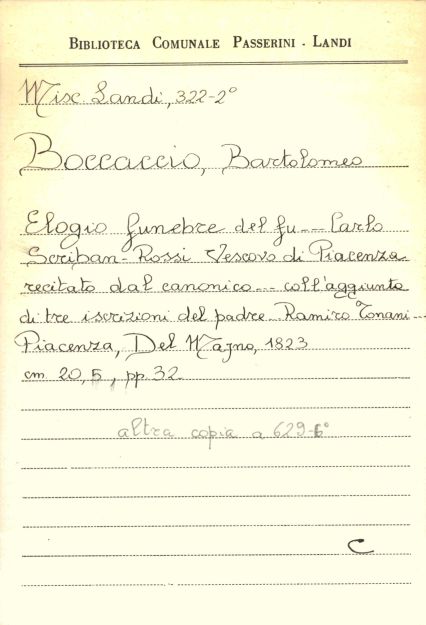 BIBLIOTECA COMUNALE PASSERINI - LANDI
Misc. Landi, 322-2°
Boccaccio, Bartolomeo
Elogio funebre del fu --- Carlo
Scriban-Rossi Vescovo di Piacenza
recitato dal canonico --- coll'aggiunta
di tre iscrizioni del padre Ramiro Tonani --
Piacenza, Del Majno, 1823
cm 20,5, pp. 32
altra copia a 629-6°
C